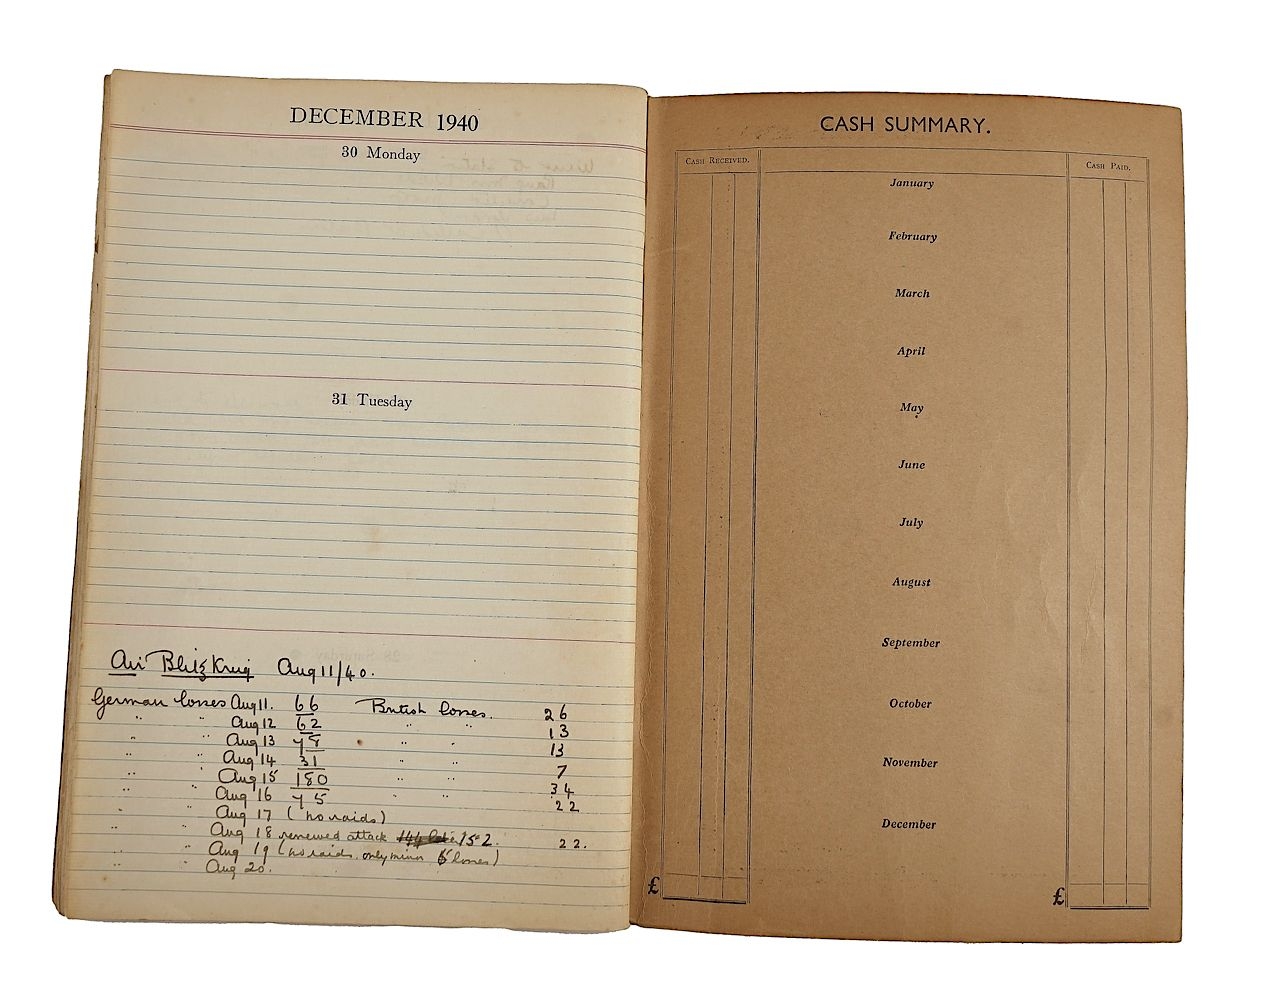 DECEMBER 1940
30 Monday
31 Tuesday
Air Blitz Krieg Aug 11/40.
German losses Aug 11. 66 British losses. 26
" " Aug 12 62 " " 13
" " Aug 13 78 " " 13
" " Aug 14 31 " " 7
" " Aug 15 180 " " 34
" " Aug 16 75 " " 22
" " Aug 17 (no raids)
" " Aug 18 renewed attack 152. 22.
" " Aug 19 (no raids. only minor losses)
" " Aug 20.
CASH SUMMARY.
CASH RECEIVED. CASH PAID.
January
February
March
April
May
June
July
August
September
October
November
December
£ £